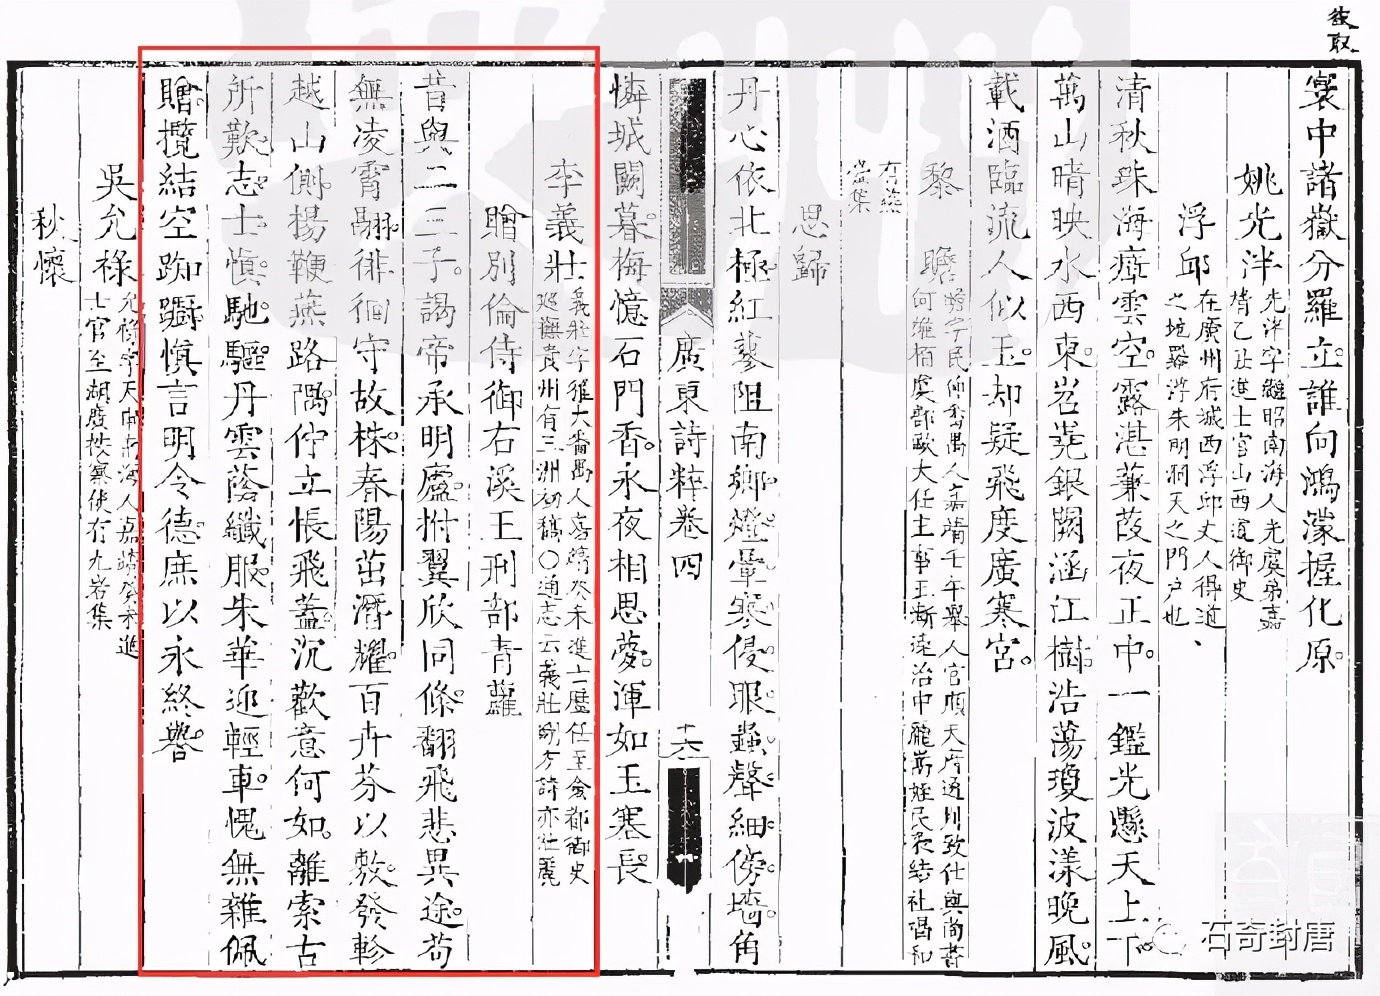 敍取
寰中諸嶽分羅立誰向鴻濛握化原
姚光泮
光泮字繼昭南海人光虞弟嘉
靖乙丑進士官山西道御史
浮邱
在廣州府城西浮邱丈人得道
之地羅浮朱明洞天之門户也
清秋珠海瘴雲空露湛蒹葭夜正中一鑑光懸天上下
萬山晴映水西東岧嶤銀闕涵江樹浩蕩瓊波漾晚風
載酒臨流人似玉却疑飛度廣寒宮
黎瞻
瞻字民仰番禺人嘉靖壬午舉人官順天府通判致仕與尚書
何維柏虞部歐大任主事王漸逵治中龐嵩姪民表結社唱和
有燕
臺集
思歸
丹心依北極紅蓼阻南鄉燈暈寒侵眼蟲聲細傍墻角
廣東詩粹卷四
十六
憐城闕暮梅憶石門香永夜相思夢渾如玉塞長
李義壯
義壯字稚大番禺人嘉靖癸未進士歷任至僉都御史
巡撫貴州有三洲初稿○通志云義壯劬方詩亦壯麗
贈別倫侍御右溪王刑部青蘿
昔與二三子謁帝承明廬拊翼欣同條翻飛悲異途苟
無凌霄翮徘徊守故株春陽茁潛耀百卉芬以敷發軫
越山側楊鞭燕路隅佇立悵飛蓋沉歡意何如離索古
所歎志士慎馳驅丹雲蔭纖服朱華迎輕車愧無雜佩
贈攬結空踟躕慎言明令德庶以永終譽
吳允祿
允祿字天申南海人嘉靖癸未進
士官至湖廣按察使有九峇集
秋懷
石奇封唐